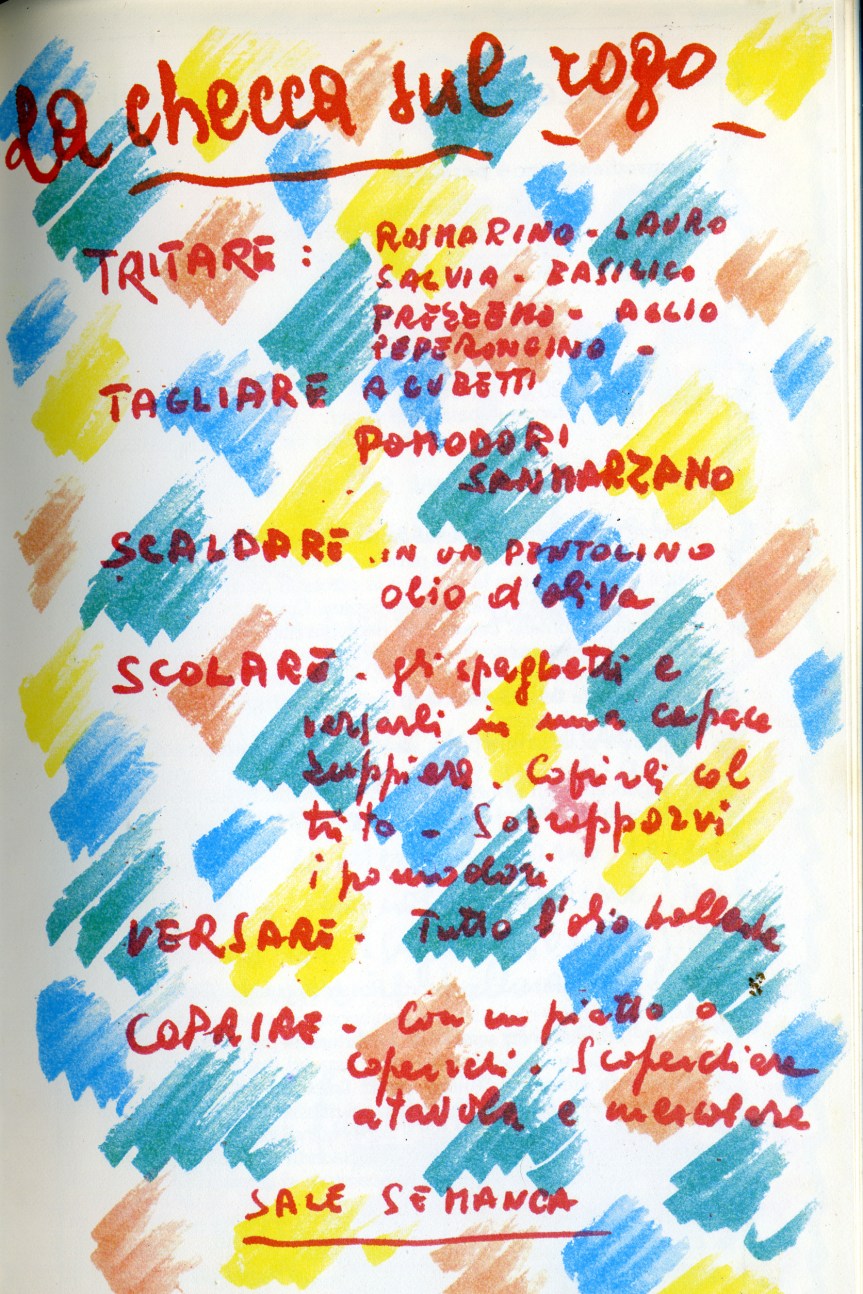 la checca sul rogo
TRITARE: ROSMARINO - LAURO
SALVIA - BASILICO
PREZZEMO - AGLIO
PEPERONCINO -
TAGLIARE A CUBETTI
POMODORI
SANMARZANO
SCALDARE IN UN PENTOLINO
olio d'oliva
SCOLARE - gli spaghetti e
versarli in una capace
zuppiera. Coprirli col
trito - Sovrapporvi
i pomodori
VERSARE - Tutto l'olio bollente
COPRIRE - Con un piatto o
coperchi. Scoperchiare
a tavola e mescolare
SALE SE MANCA